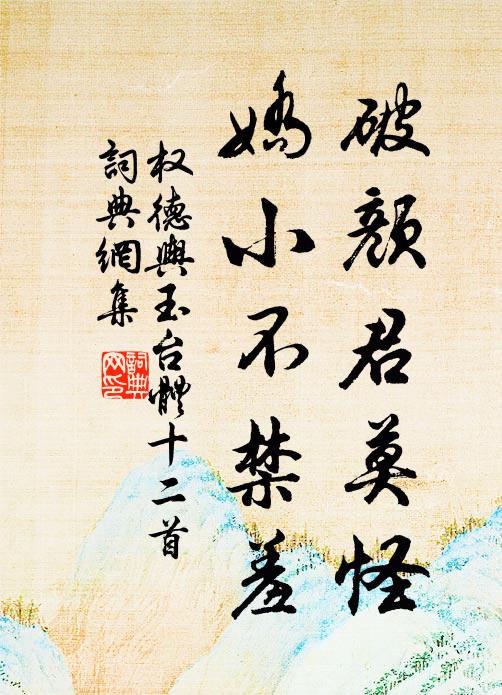 破颜君莫怪
娇小不禁羞
权德輿玉台體十二首
詞典網集
詞典
网印